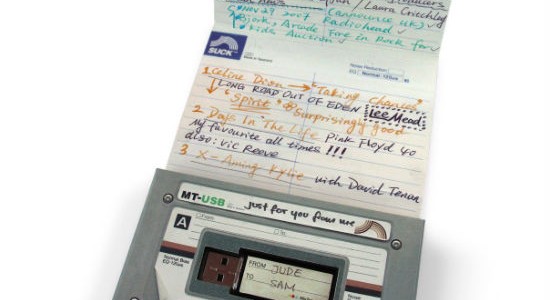 Laura Critchley
5 Nov 29 2007 (announce UK)
Björk, Arcade Fire in Rock for
Kids Auction
SUCK
Noise Reduction
1 Celine Dion → "Taking Chances"
↓ LONG ROAD OUT OF EDEN Lee Mead
"Spirit" Surprisingly good
2 Days In The Life Pink Floyd 40
my favourite all times !!!
also: Vic Reeve
3 X = Aming Kylie with David Tenan
MT-USB just for you from me
A
FROM JUDE
TO SAM